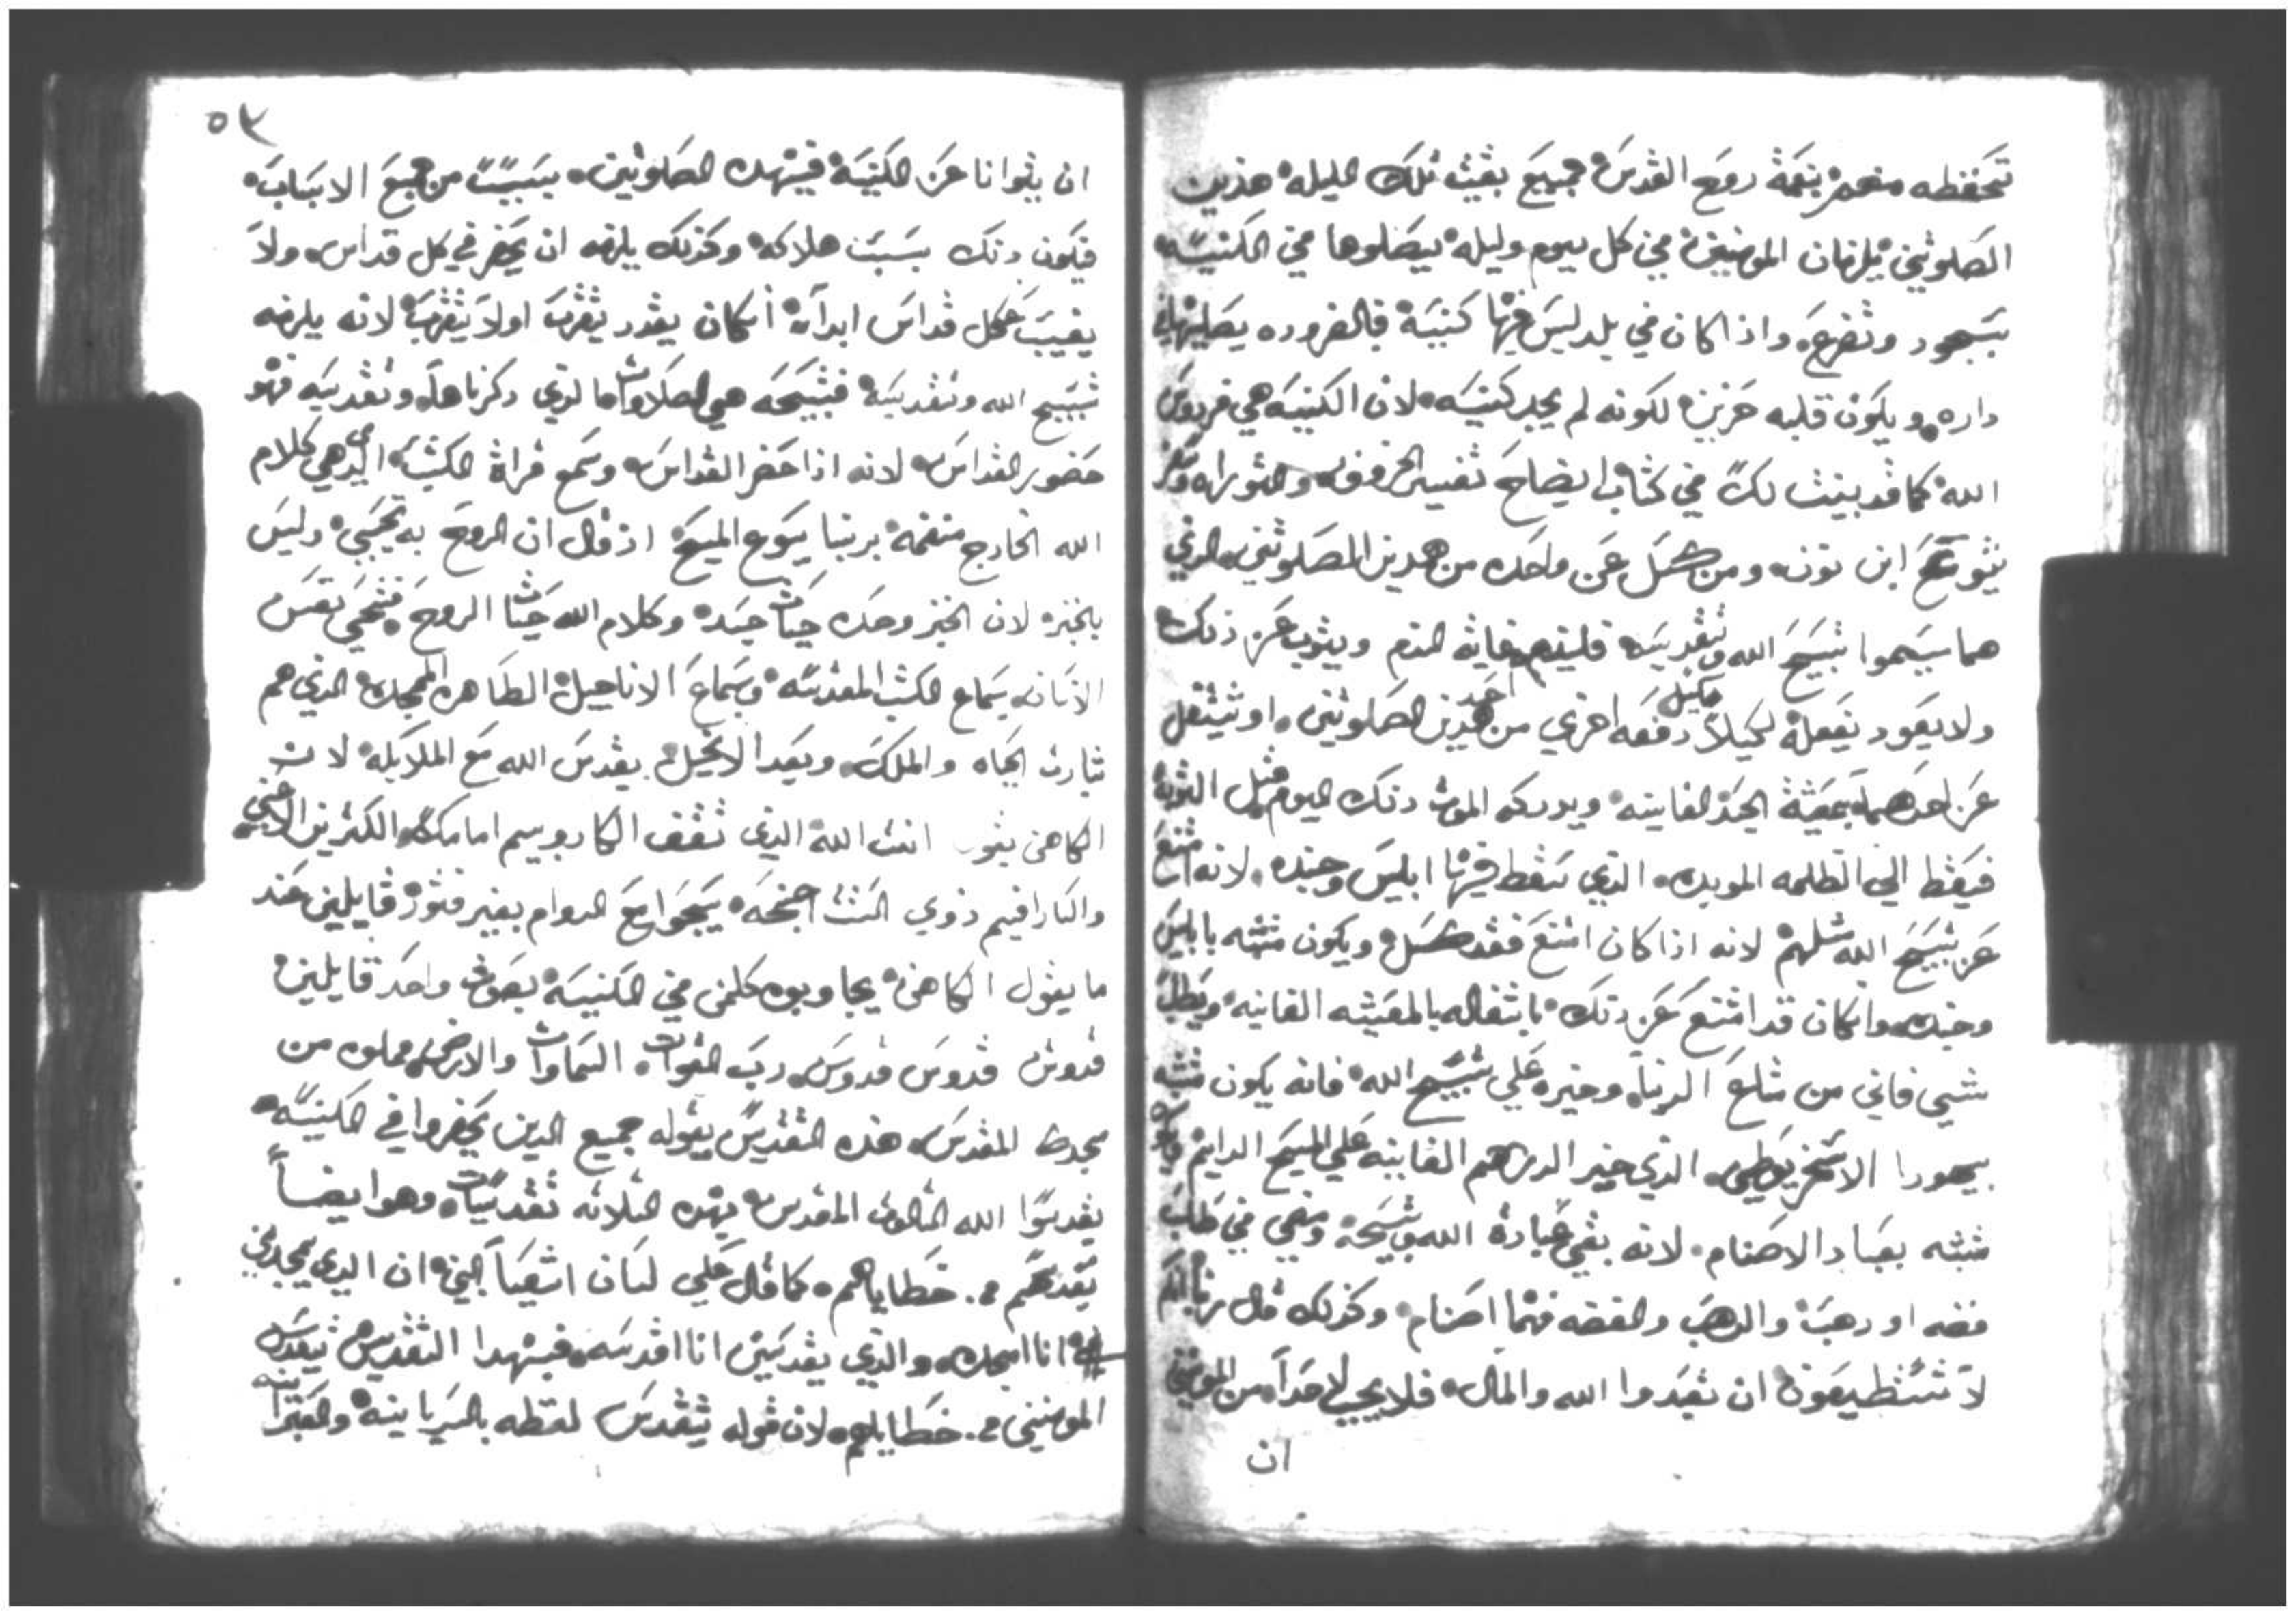 تحفظه منهم نعمة روح القدس جميع بقيت تلك الليله هذين
الصلوتين يلزمان المومنين في كل يوم وليله يصلوها في الكنيسه
بسجود وتضرع، واذا كان في بلد ليس فيها كنيسة فبالضروره يصليهما في
داره ويكون قلبه حزين لكونه لم يجد كنيسه لان الكنيسه هي فردوس
الله كما قد بينت لك في كتاب ايضاح تفسير الخروف والتوراه
يشوع ابن نون ومن كسل عن واحده من هدين الصلوتين الدي
هما تسبيح الله وتقديسه فليندم غاية الندم ويتوب عن ذلك
ولا يعود يفعله ليلا يكسل دفعه اخري من احد هدين الصلوتين او يشتغل
عن احدهما بمعيشة الجسد الفانيه ويدركه الموت دلك اليوم قبل التوبه
فيسقط الي الظلمه الموبده الدي سقط فيها ابليس وجنده لانه امتنع
عن تسبيح الله مثلهم لانه اذا كان امتنع فقد كسل ويكون متشبه بابليس
وجنده وان كان قد امتنع عن دلك باشتغاله بالمعيشه الفانيه ويطلب
شي فاني من متاع الدنيا وخيره علي تسبيح الله فانه يكون متشبه
بيهودا الاسخريوطي الدي خير الدراهم الفانيه علي المسيح الدايم
متشبه بعباد الاصنام لانه بقي عبادة الله وتسبيحه ومضي في طلب
فضه او دهب والدهب والفضه فهما اصنام وكذلك قال ربنا انكم
لا تستطيعون ان تعبدوا الله والمال فلا يجب لاحدا من المومنين
ان
٥٣
ان يتوانا عن الكنيسه في هده الصلوتين بسببا من جميع الاسباب
فيكون دلك بسبب هلاكه وكذلك يلزمه ان يحضر في كل قداس ولا
يغيب عن كل قداس ابدا ان كان يقدر يتقرب اولا يتقرب لانه يلزمه
تسبيح الله وتقديسه فتسبيحه هي الصلاوات الدي دكرناها وتقديسه فهو
حضور القداس لانه اذا حضر القداس وسمع قراة الكتب الدي هي كلام
الله الخارج من فمه ربنا يسوع المسيح اذ قال ان الروح به تحيي وليس
بالخبز لان الخبز وحده حيات جسده وكلام الله حيات الروح فتحيي نفس
الانسان بسماع الكتب المقدسه وسماع الاناجيل الطاهره الممجده الدي هم
بشارت الحياه والملك وبعد الانجيل يقدس الله مع الملايكه لان
الكاهن يقول انت الله الدي تقف الكاروبيم امامك الكتيرين الاعين
والسارافيم ذوي الست اجنحه يسبحوا مع الدوام بغير فتور قايلين عند
ما يقول الكاهن يجاوبوه كلمن في الكنيسه بصوت واحد قايلين
قدوس قدوس قدوس رب القوات السماوات والارض مملوه من
مجدك المقدس هذه التقديس يقوله جميع الدين يحضروا في الكنيسه
يقدسوا الله التالوت المقدس بهده التلاته تقديسات وهو ايضا
يقدسهم من خطاياهم كما قال علي لسان اشعيا النبي ان الدي يمجدني
انا امجده والدي يقدسني انا اقدسه فبهدا التقديس يتقدس
المومنين من خطاياهم لان قوله يتقدس لفظه بالسريانيه والعبرانيه